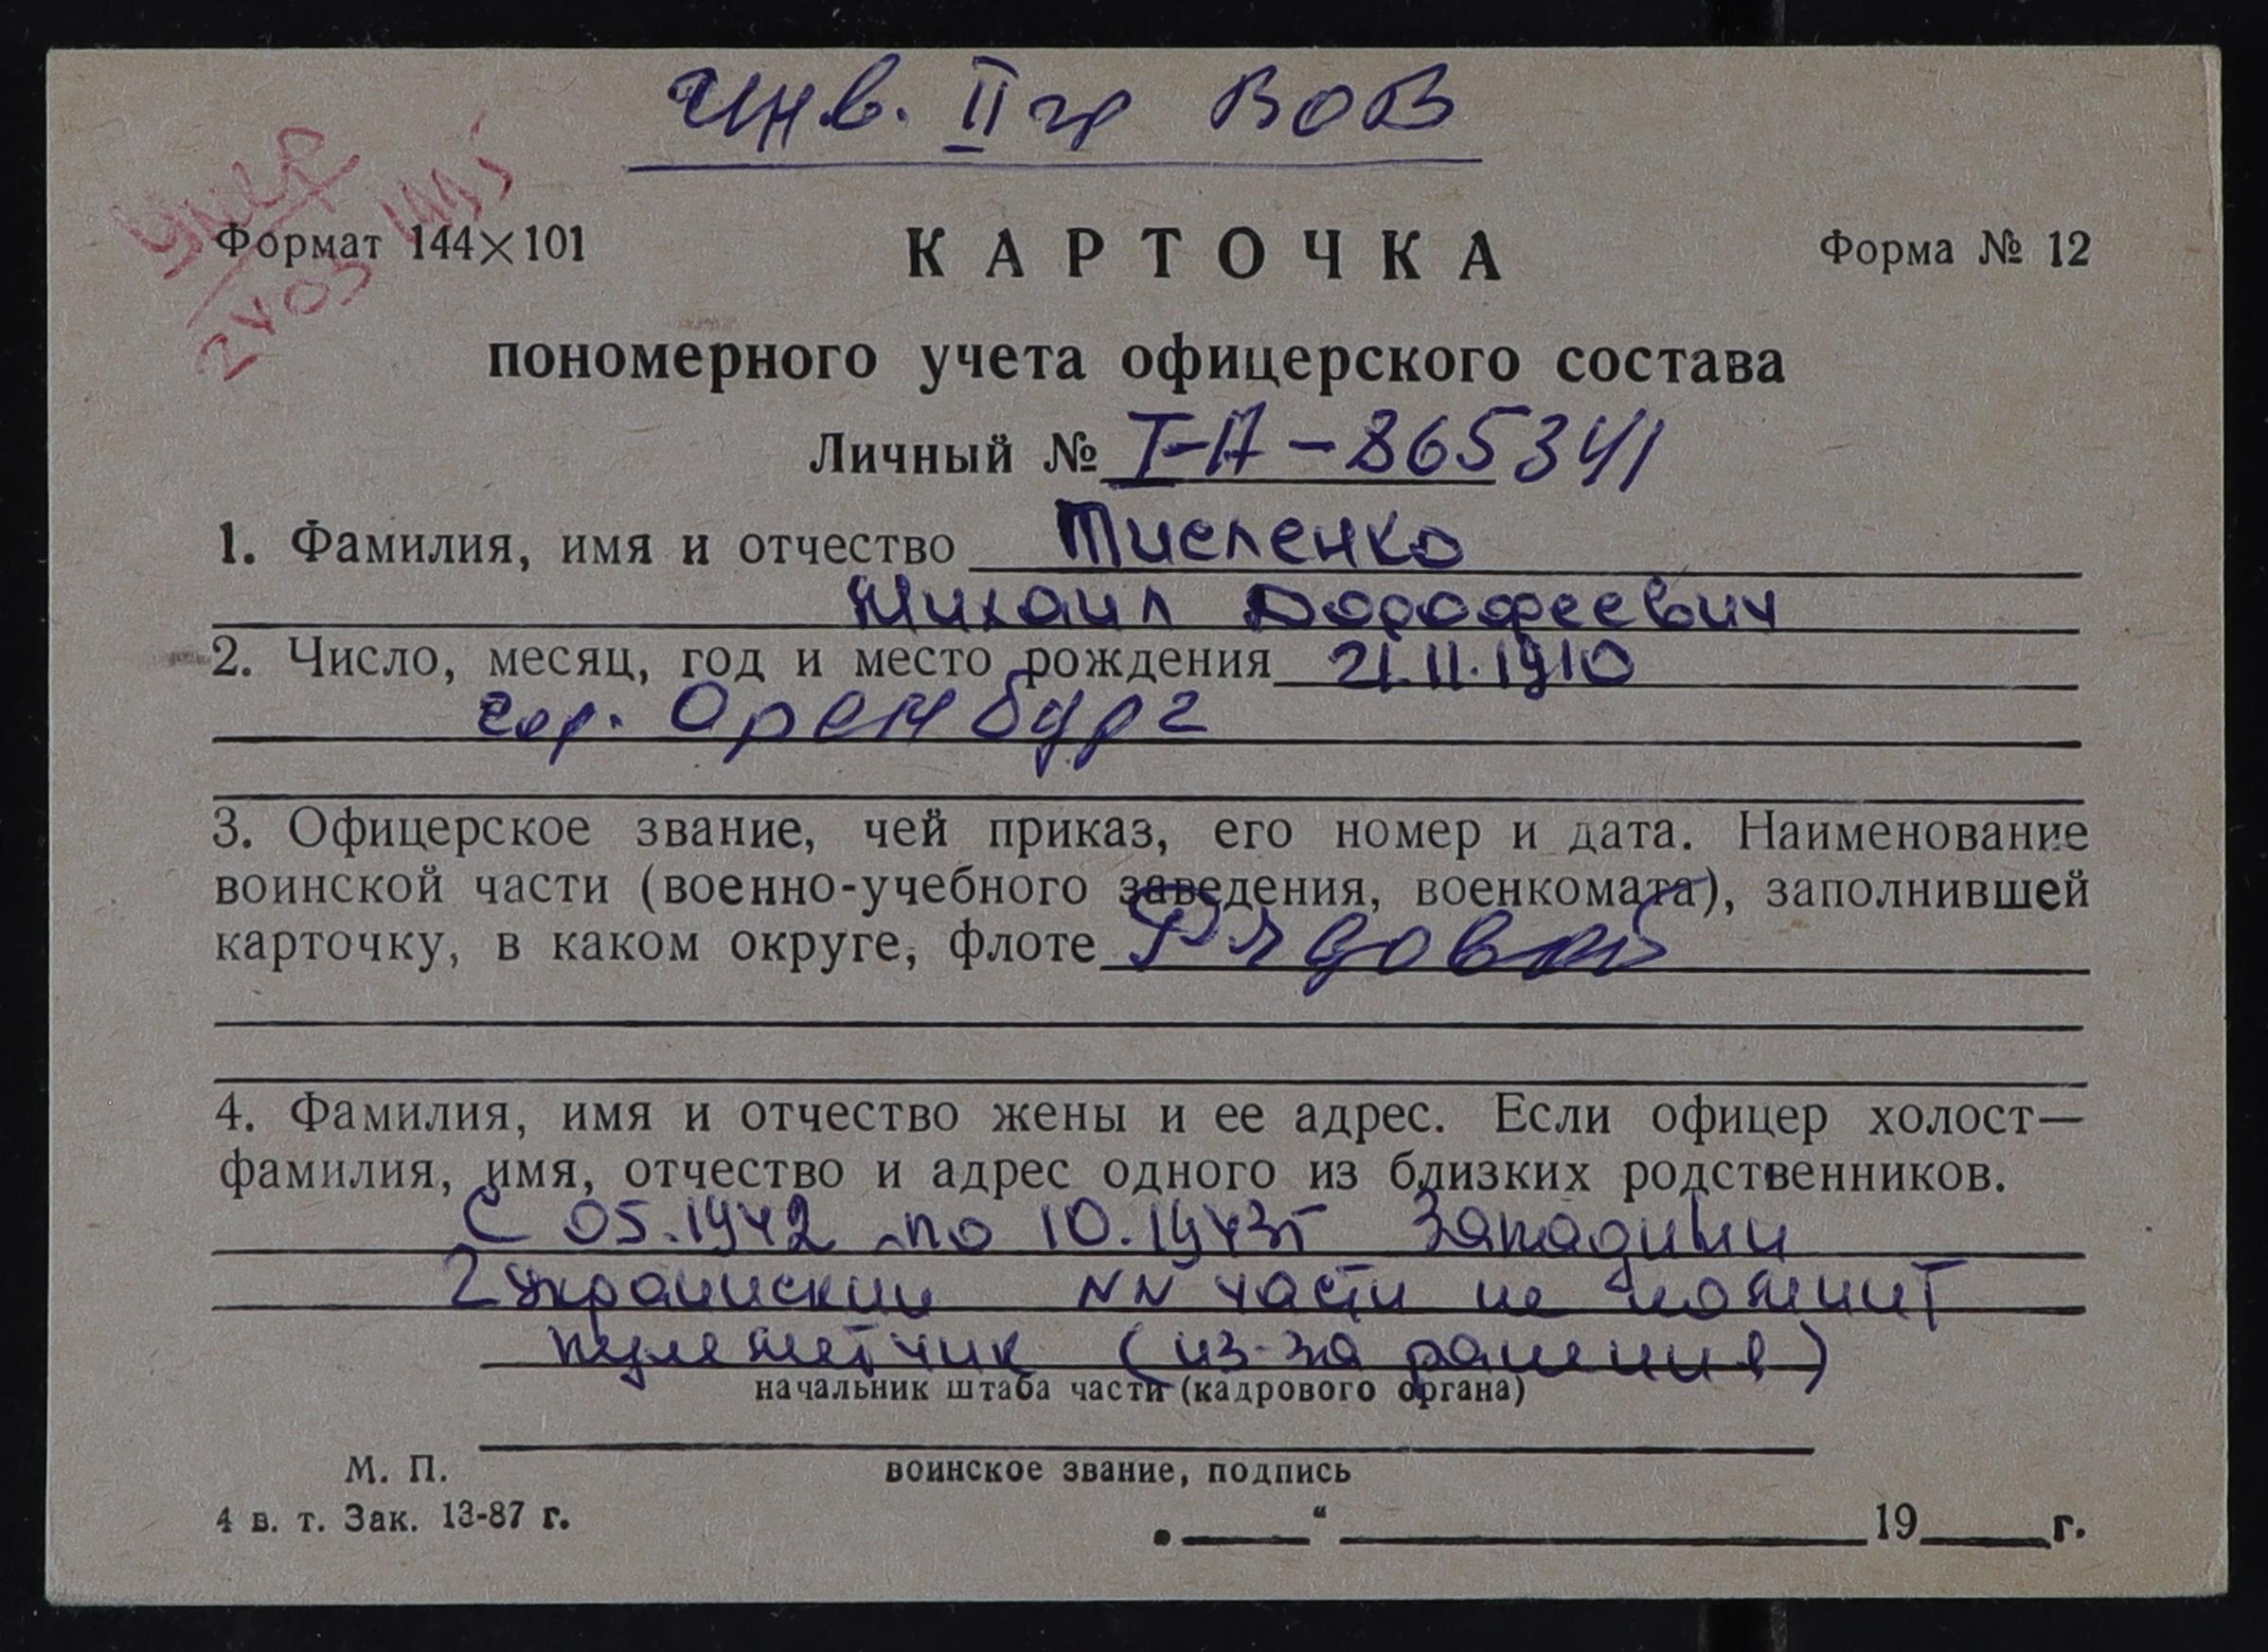 Инв. II гр ВОВ
Умер
Формат 144×101
КАРТОЧКА
Форма № 12
пономерного учета офицерского состава
Личный № I-А-865341
1. Фамилия, имя и отчество Тисленко
Михаил Дорофеевич
2. Число, месяц, год и место рождения 21.11.1910
гор. Оренбург
3. Офицерское звание, чей приказ, его номер и дата. Наименование
воинской части (военно-учебного заведения, военкомата), заполнившей
карточку, в каком округе, флоте Рядовой
4. Фамилия, имя и отчество жены и ее адрес. Если офицер холост—
фамилия, имя, отчество и адрес одного из близких родственников.
С 05.1942 по 10.1943г Западный
2 украинский NN части не помнит
пулеметчик (из-за ранения)
начальник штаба части (кадрового органа)
М. П.
воинское звание, подпись
4 в. т. Зак. 13-87 г.
„ “ 19 г.